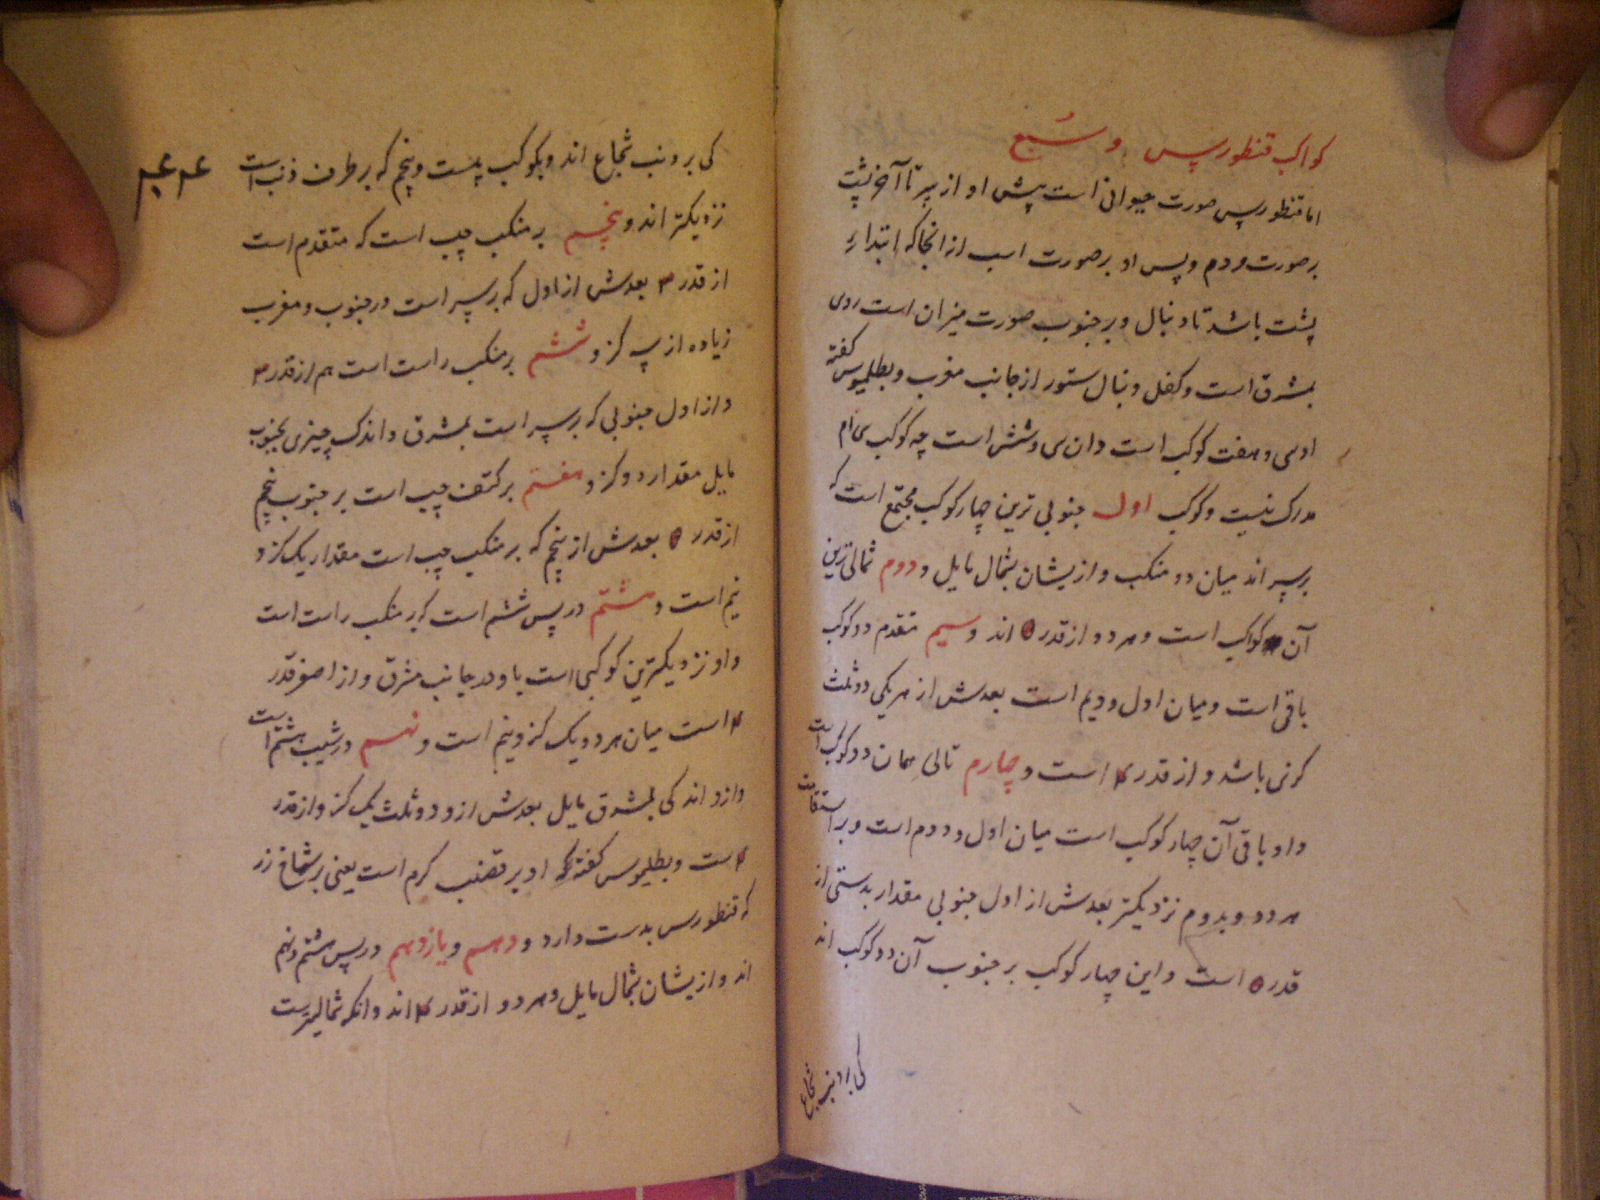 کواکب قنطورس و سبع
اما قنطورس صورت حیوانی است پیش او از سر تا آخر پشت
بر صورت مردم و پس او بر صورت اسب از انجا که ابتداء
پشت باشد تا دنبال و بر جنوب صورت میزان است روی
بمشرق است و کفل و دنبال ستور از جانب مغرب و بطلیموس گفته
او سی و هفت کوکب است و ان سی و شش است چه کوکب سی ام
مدرک نیست و کوکب اول جنوبی ترین چهار کوکب مجتمع است که
بر سر اند میان دو منکب و از یشان بشمال مایل و دوم شمالی ترین
آن کواکب است و هر دو از قدر ۵ اند و سیم متقدم دو کوکب
باقی است و میان اول و دیم است بعدش از هر یکی دو ثلث
گزی باشد و از قدر ۴ است و چهارم تالی همان دو کوکب است
و او باقی آن چهار کوکب است میان اول و دوم است و بر استقامت
هر دو و بدوم نزدیکتر بعدش از اول جنوبی مقدار بدستی از
قدر ۵ است و این چهار کوکب بر جنوب آن دو کوکب اند
کی بر ذنب شجاع
کی بر ذنب شجاع اند و بکوکب بیست و پنجم که بر طرف ذنب است
نزدیکتر اند و پنجم بر منکب چپ است که متقدم است
از قدر ۳ بعدش از اول که بر سر است در جنوب و مغرب
زیاده از سه گز و ششم بر منکب راست است هم از قدر ۳
و از اول جنوبی که بر سر است بمشرق و اندک چیزی بجنوب
مایل مقدار دو گز و هفتم بر کتف چپ است بر جنوب پنجم
از قدر ۵ بعدش از پنجم که بر منکب چپ است مقدار یک گز و
نیم است و هشتم در پس ششم است که بر منکب راست است
و او نزدیکترین کوکبی است باو در جانب مشرق و از اصغر قدر
۴ است میان هر دو یک گز و نیم است و نهم در شیب هشتم است
و از و اند کی بمشرق مایل بعدش از و دو ثلث یک گز و از قدر
۴ است و بطلیموس گفته که او بر قضیب کرم است یعنی بر شاخ رز
که قنطورس بدست دارد و دهم و یازدهم در پس هشتم و نهم
اند و از یشان بشمال مایل و هر دو از قدر ۴ اند و انکه شمالیترست